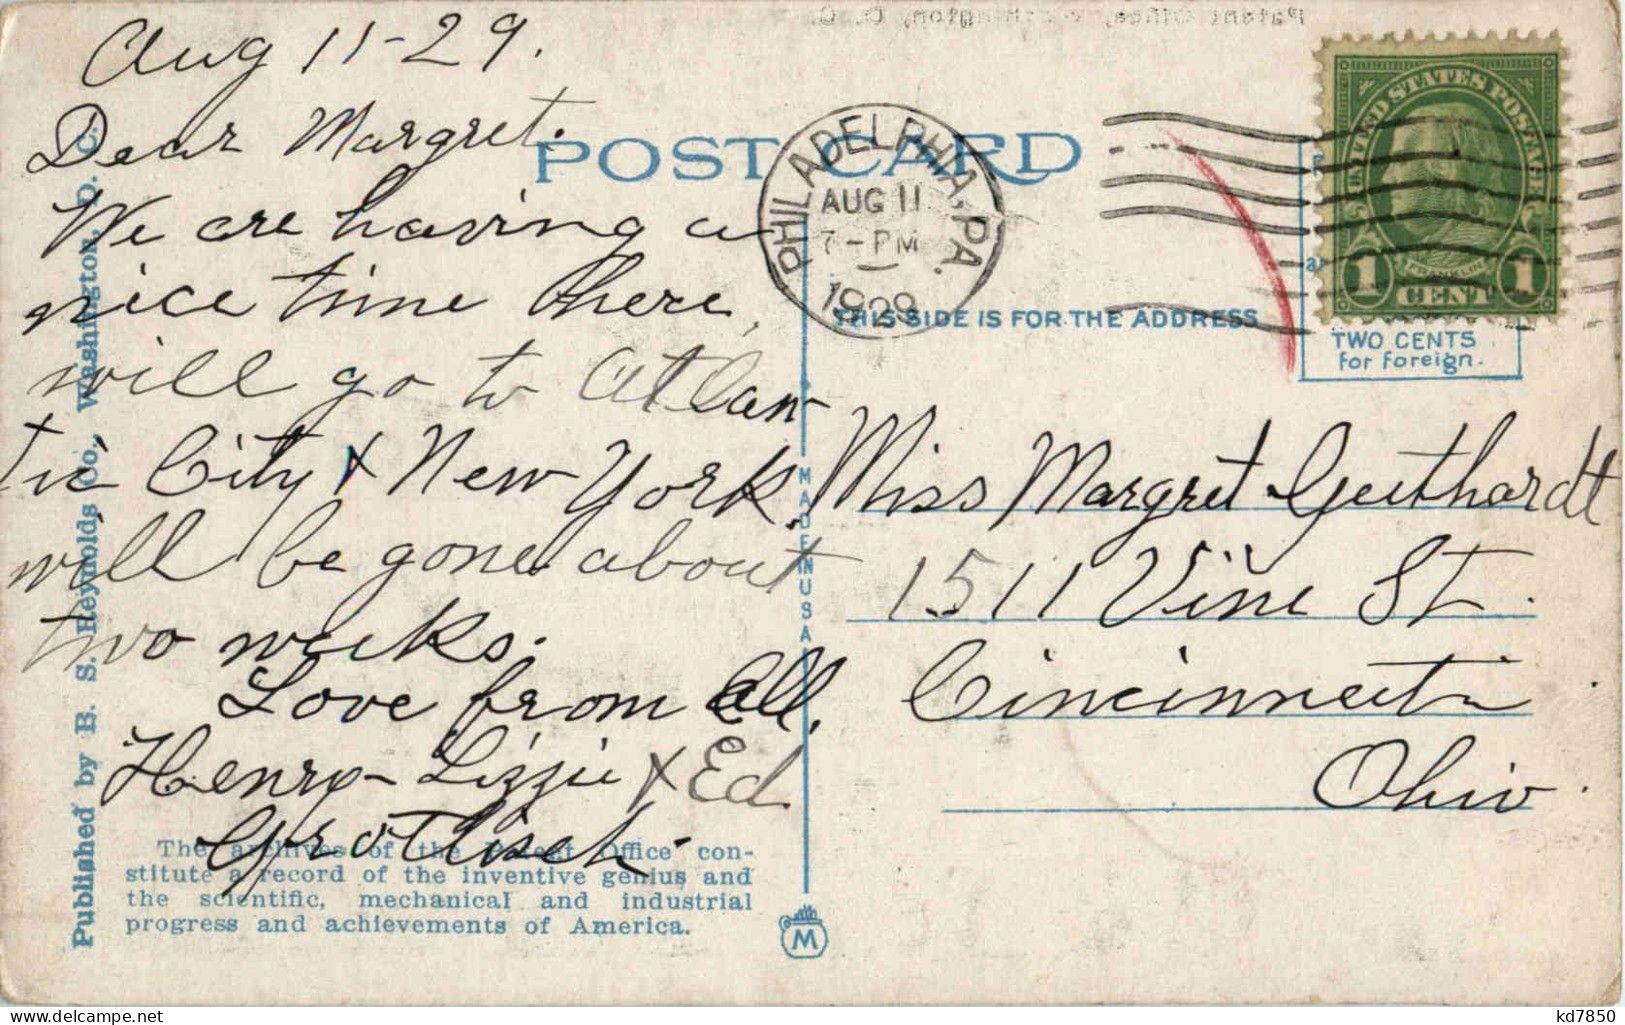 Patent Office, Washington, D. C.
Aug 11-29.
Dear Margret.
We are having a
nice time there,
will go to Atlan
tic City & New York.
will be gone about
two weeks.
Love from All.
Henry - Lizzie & Ed
POST CARD
PHILADELPHIA, PA.
AUG 11
7-PM
1929
THIS SIDE IS FOR THE ADDRESS
UNITED STATES POSTAGE
FRANKLIN
1 CENT 1
TWO CENTS
for foreign.
Miss Margret Geithardt
1511 Vine St.
Cincinnati
Ohio.
MADE IN USA
M
Published by B. S. Reynolds Co., Washington, D. C.
The archives of the Patent Office con-
stitute a record of the inventive genius and
the scientific, mechanical and industrial
progress and achievements of America.
kd7850